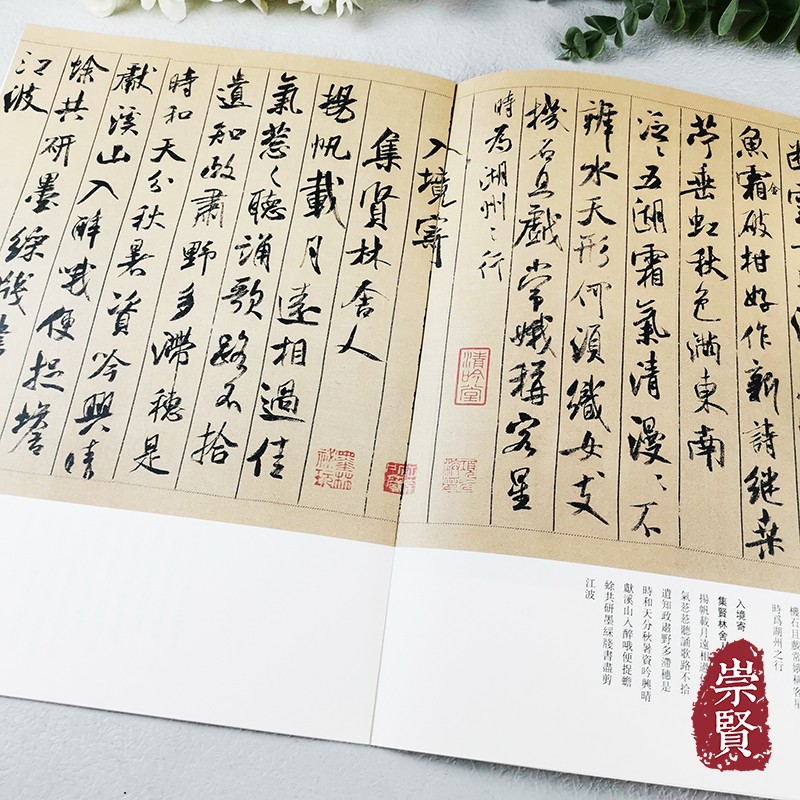 魚霜金破柑好作新詩繼桑
苧垂虹秋色滿東南
泛〻五湖霜氣清漫〻不
辨水天形何須織女支
機石且戲常娥稱客星
時為湖州之行
入境寄
集賢林舍人
揚帆載月遠相過佳
氣蔥〻聽誦歌路不拾
遺知政肅野多滯穗是
時和天分秋暑資吟興晴
獻溪山入醉哦便捉蟾
蜍共研墨綵牋書
江波
清吟堂
墨林秘玩
機石且戲常娥稱客星
時爲湖州之行
入境寄
集賢林舍
揚帆載月遠相過
氣葱葱聽誦歌路不拾
遺知政肅野多滯穗是
時和天分秋暑資吟興晴
獻溪山入醉哦便捉蟾
蜍共研墨綵牋書盡剪
江波
崇賢